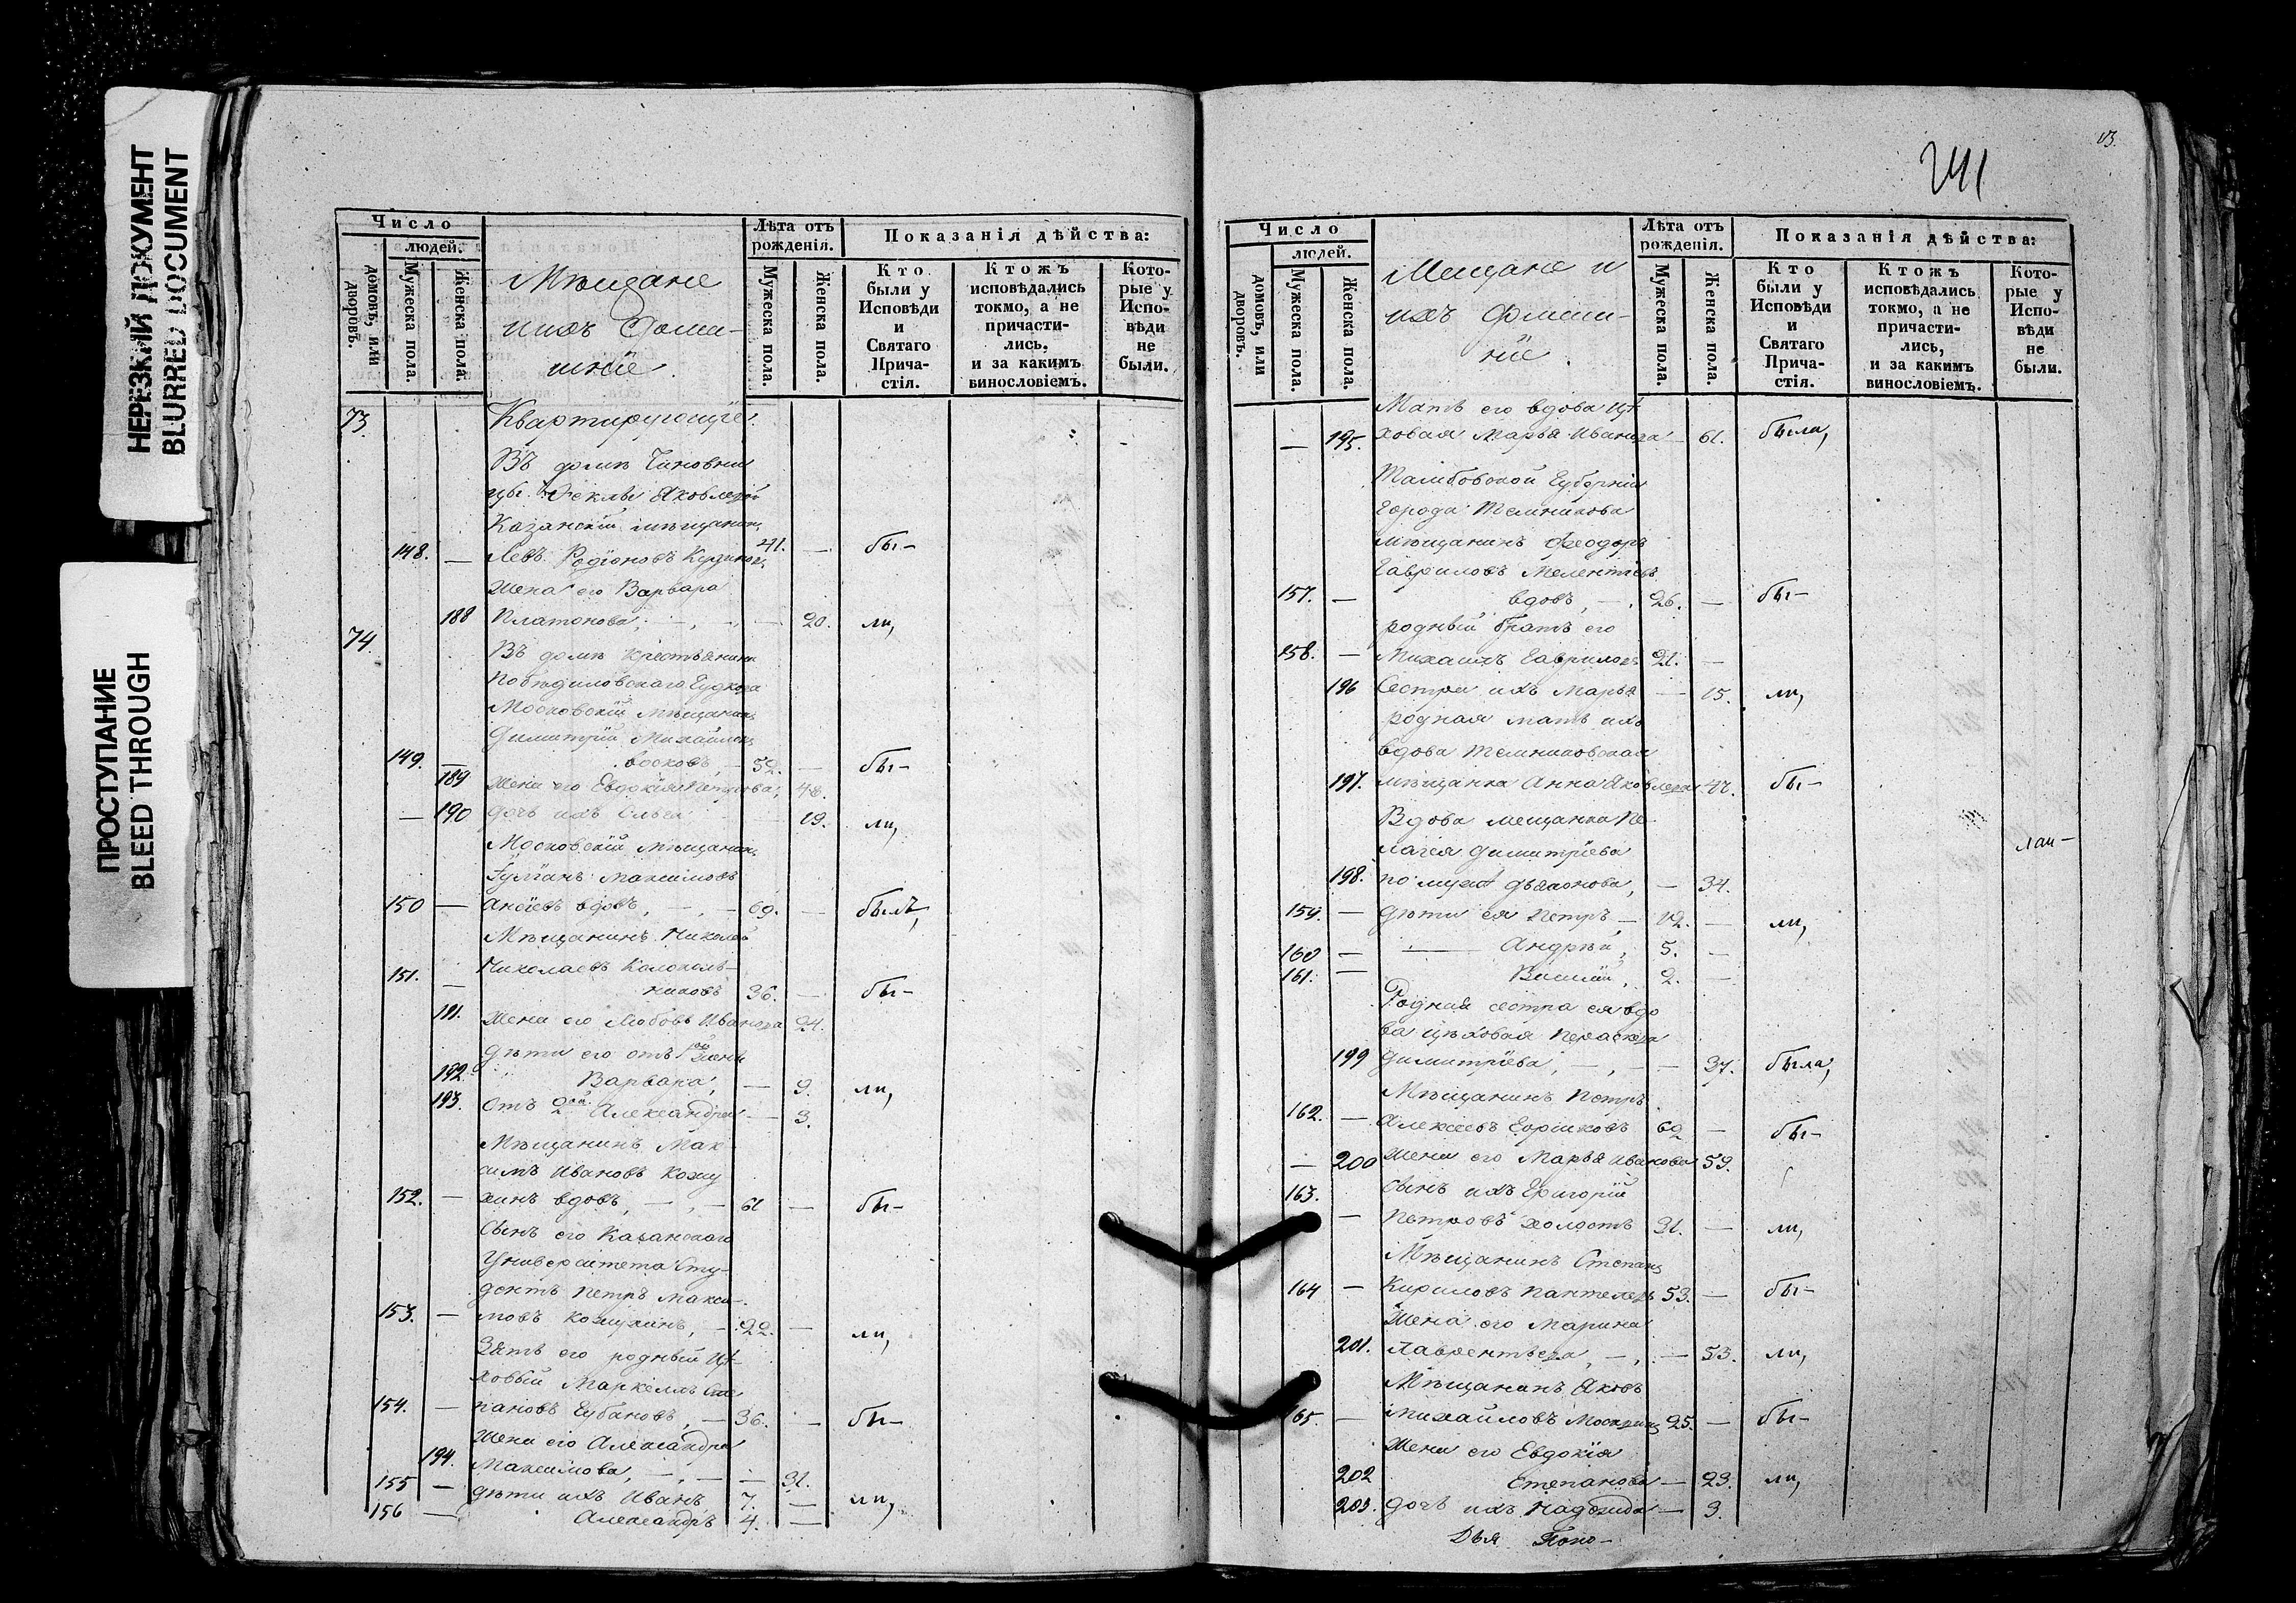 НЕРЕЗКИЙ ДОКУМЕНТ
BLURRED DOCUMENT
ПРОСТУПАНИЕ
BLEED THROUGH
Число
людей.
домовъ, или дворовъ.
Мужеска пола.
Женска пола.
Мѣщане
ихъ дома-
шніе.
Лѣта отъ рожденія.
Мужеска пола.
Женска пола.
Показанія дѣйства:
Кто были у Исповѣди и Святаго Прича-стія.
Ктожъ исповѣдались токмо, а не причасти-лись, и за какимъ винословіемъ.
Кото-рые у Испо-вѣди не были.
73. Квартирующіе:
Въ домѣ Чиновни
цы Ѳеклы Яковлевой
Казанскій мѣщанинъ
148. — Левъ Родіоновъ 41. — бы-
Жена его Варвара
188 Платонова, — 20. ли,
74. Въ домѣ Крестьянина
Московскій мѣщанинъ
Димитрій Михайловъ
149. — 52. — бы-
189 Жена его Евдокія Петрова, 48.
— 190 дочь ихъ Ольга 19. ли,
Московскій мѣщанинъ
Максимовъ
150 — вдовъ, — 69. — былъ,
Мѣщанинъ Николай
151. — Николаевъ Колоколь-
никовъ 36. — бы-
191. Жена его Любовь Иванова 24.
дѣти его отъ 1ой жены
192. Варвара, — 9. ли,
193. Отъ 2ой Александра — 3.
Мѣщанинъ Мак-
симъ Ивановъ Кожу
152. — хинъ вдовъ, — 61 — бы-
Сынъ его Казанскаго
Университета Сту-
дентъ Петръ Макси-
153. — мовъ Кожухинъ, — 22. — ли,
Зять его родный Цѣ-
ховый Маркеллъ Сте
154. — пановъ Губановъ, — 36. — бы-
Жена его Александра
194. Максимова, — 31.
155 — дѣти ихъ Иванъ 7. — ли,
156 — Александръ 4. —
241
Число
людей.
домовъ, или дворовъ.
Мужеска пола.
Женска пола.
Мещане и
ихъ
Лѣта отъ рожденія.
Мужеска пола.
Женска пола.
Показанія дѣйства:
Кто были у Исповѣди и Святаго Прича-стія.
Ктожъ исповѣдались токмо, а не причасти-лись, и за какимъ винословіемъ.
Кото-рые у Испо-вѣди не были.
Мать его вдова Цѣ-
— 195. ховая Марья Иванова — 61. была,
Тамбовской Губерніи
Города Темникова
мѣщанинъ Ѳеодоръ
Гавриловъ Мелентьевъ
157. — вдовъ, — 26. — бы-
родный братъ его
158. — Михаилъ Гавриловъ 21. —
196 Сестра ихъ Марья — 15. ли,
родная мать ихъ
вдова Темниковская
197. мѣщанка Анна Яковлева 47. бы-
Вдова мещанка Пе-
лагея Димитріева
198. по мужѣ Дьяконова, — 34.
159. — дѣти ея Петръ — 12. — ли,
160 — Андрей, 5. —
161. — 2. —
Родная сестра ея вдо
ва цѣховая Параскева
199 Димитріева, — 37. была,
Мѣщанинъ Петръ
162. — Алексѣевъ Горшковъ 62 — бы-
— 200 Жена его Марья Иванова 59.
163. Сынъ ихъ Григорій
— Петровъ холостъ 31. — ли,
Мѣщанинъ Степанъ
164 — Кириловъ Пантелеевъ 53. — бы-
Жена его Марина
201. Лаврентьева, — 53. ли,
Мѣщанинъ Яковъ
165. — Михайловъ 25. — бы-
Жена его Евдокія
202 Степанова — 23. ли,
203. дочь ихъ Надежда — 3.